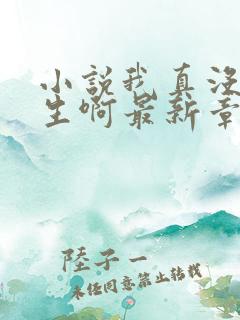 小說我真沒
生啊最新章
陸子一
未經同意禁止轉載